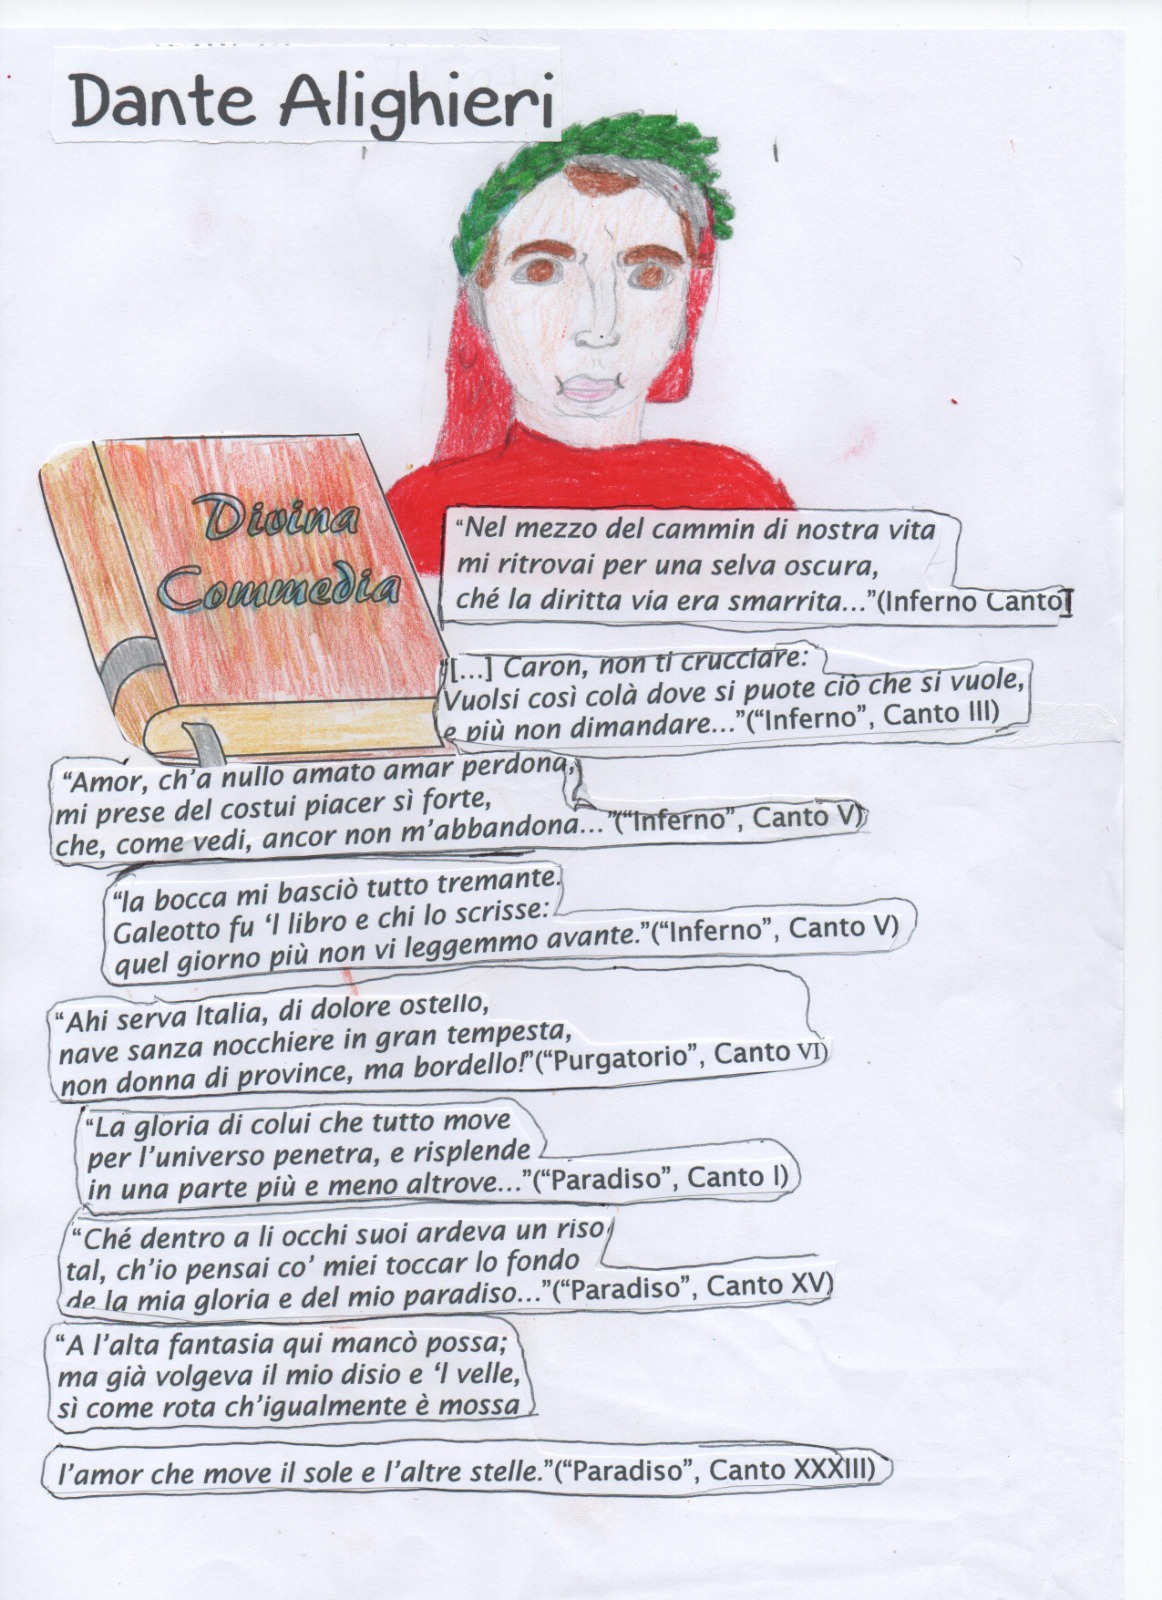 Dante Alighieri
Divina
Commedia
“Nel mezzo del cammin di nostra vita
mi ritrovai per una selva oscura,
ché la diritta via era smarrita...”(Inferno Canto I
“[...] Caron, non ti crucciare:
Vuolsi così colà dove si puote ciò che si vuole,
e più non dimandare...”(“Inferno”, Canto III)
“Amor, ch’a nullo amato amar perdona,
mi prese del costui piacer sì forte,
che, come vedi, ancor non m’abbandona...”(“Inferno”, Canto V)
“la bocca mi basciò tutto tremante.
Galeotto fu ‘l libro e chi lo scrisse:
quel giorno più non vi leggemmo avante.”(“Inferno”, Canto V)
“Ahi serva Italia, di dolore ostello,
nave sanza nocchiere in gran tempesta,
non donna di province, ma bordello!”(“Purgatorio”, Canto VI)
“La gloria di colui che tutto move
per l’universo penetra, e risplende
in una parte più e meno altrove...”(“Paradiso”, Canto I)
“Ché dentro a li occhi suoi ardeva un riso
tal, ch’io pensai co’ miei toccar lo fondo
de la mia gloria e del mio paradiso...”(“Paradiso”, Canto XV)
“A l’alta fantasia qui mancò possa;
ma già volgeva il mio disio e ‘l velle,
sì come rota ch’igualmente è mossa
l’amor che move il sole e l’altre stelle.”(“Paradiso”, Canto XXXIII)